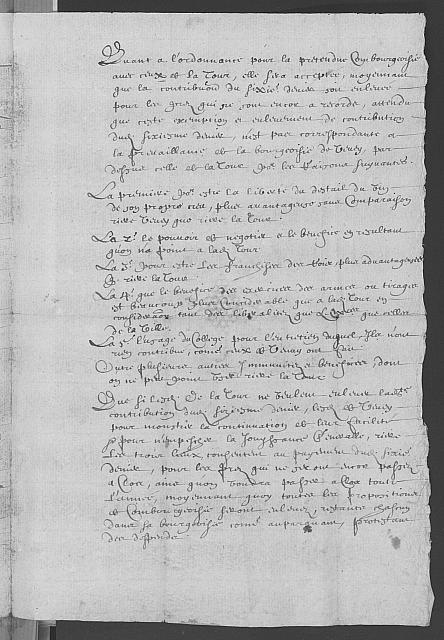 Quant a l'ordonnance pour la pretendue Combourgeoisie
avec ceux de la Tour, elle sera acceptee, moyennant
que la contribution du sixie: denier soit enlevee
pour les qui ne sont encor a recorde, attendu
que ceste exemption et enlevement de contribution
dud: sixiesme denier, n'est pas correspondante a
la prevaillance de la bourgeoisie de Vevey, par
dessus celle de la Tour, po: les Raisons suyvantes.
La premiere po: estre la liberté du destail du vin
de son propre creu, plus avantageuse sans Comparaison
riere Vevey que riere la Tour.
La 2e. le pouvoir de negotier et le benefice en resultant
quon n'a point a lad: Tour
La 3e. pour estre les franchises des foires plus advantageuses
que riere la Tour.
La 4e. que le benefice des exercices des armes ou tirages
est beaucoup plus considerable que a lad: Tour en
consideration tant des liberalitez que LL EE que celles
de la Ville.
La 5e. l'usage du College pour l'entretien duquel Ils n'ont
rien contribué, come ceux de Vevey ont fait
Outre plusieurs autres Immunitez et benefices, dont
on ne peut jouir riere la Tour.
Que si lesd: de la Tour ne veulent enlever lad:
contribution dud: sixiesme denier, lesd: de Vevey
pour monstrer la continuation de leur facilité
& pour n'empescher la Jouyssance riere
les trois lieux, consentent au payement dud: sixie:
denier, pour les qui ne seront encor passez
a Clos, ains quon voudra passer a Clos toute
l'année, moyennant quoy toutes les propositions
de Combourgeoisie seront enlevees, restante chascun
dans sa bourgeoisie come auparavant, protestant
des despends.